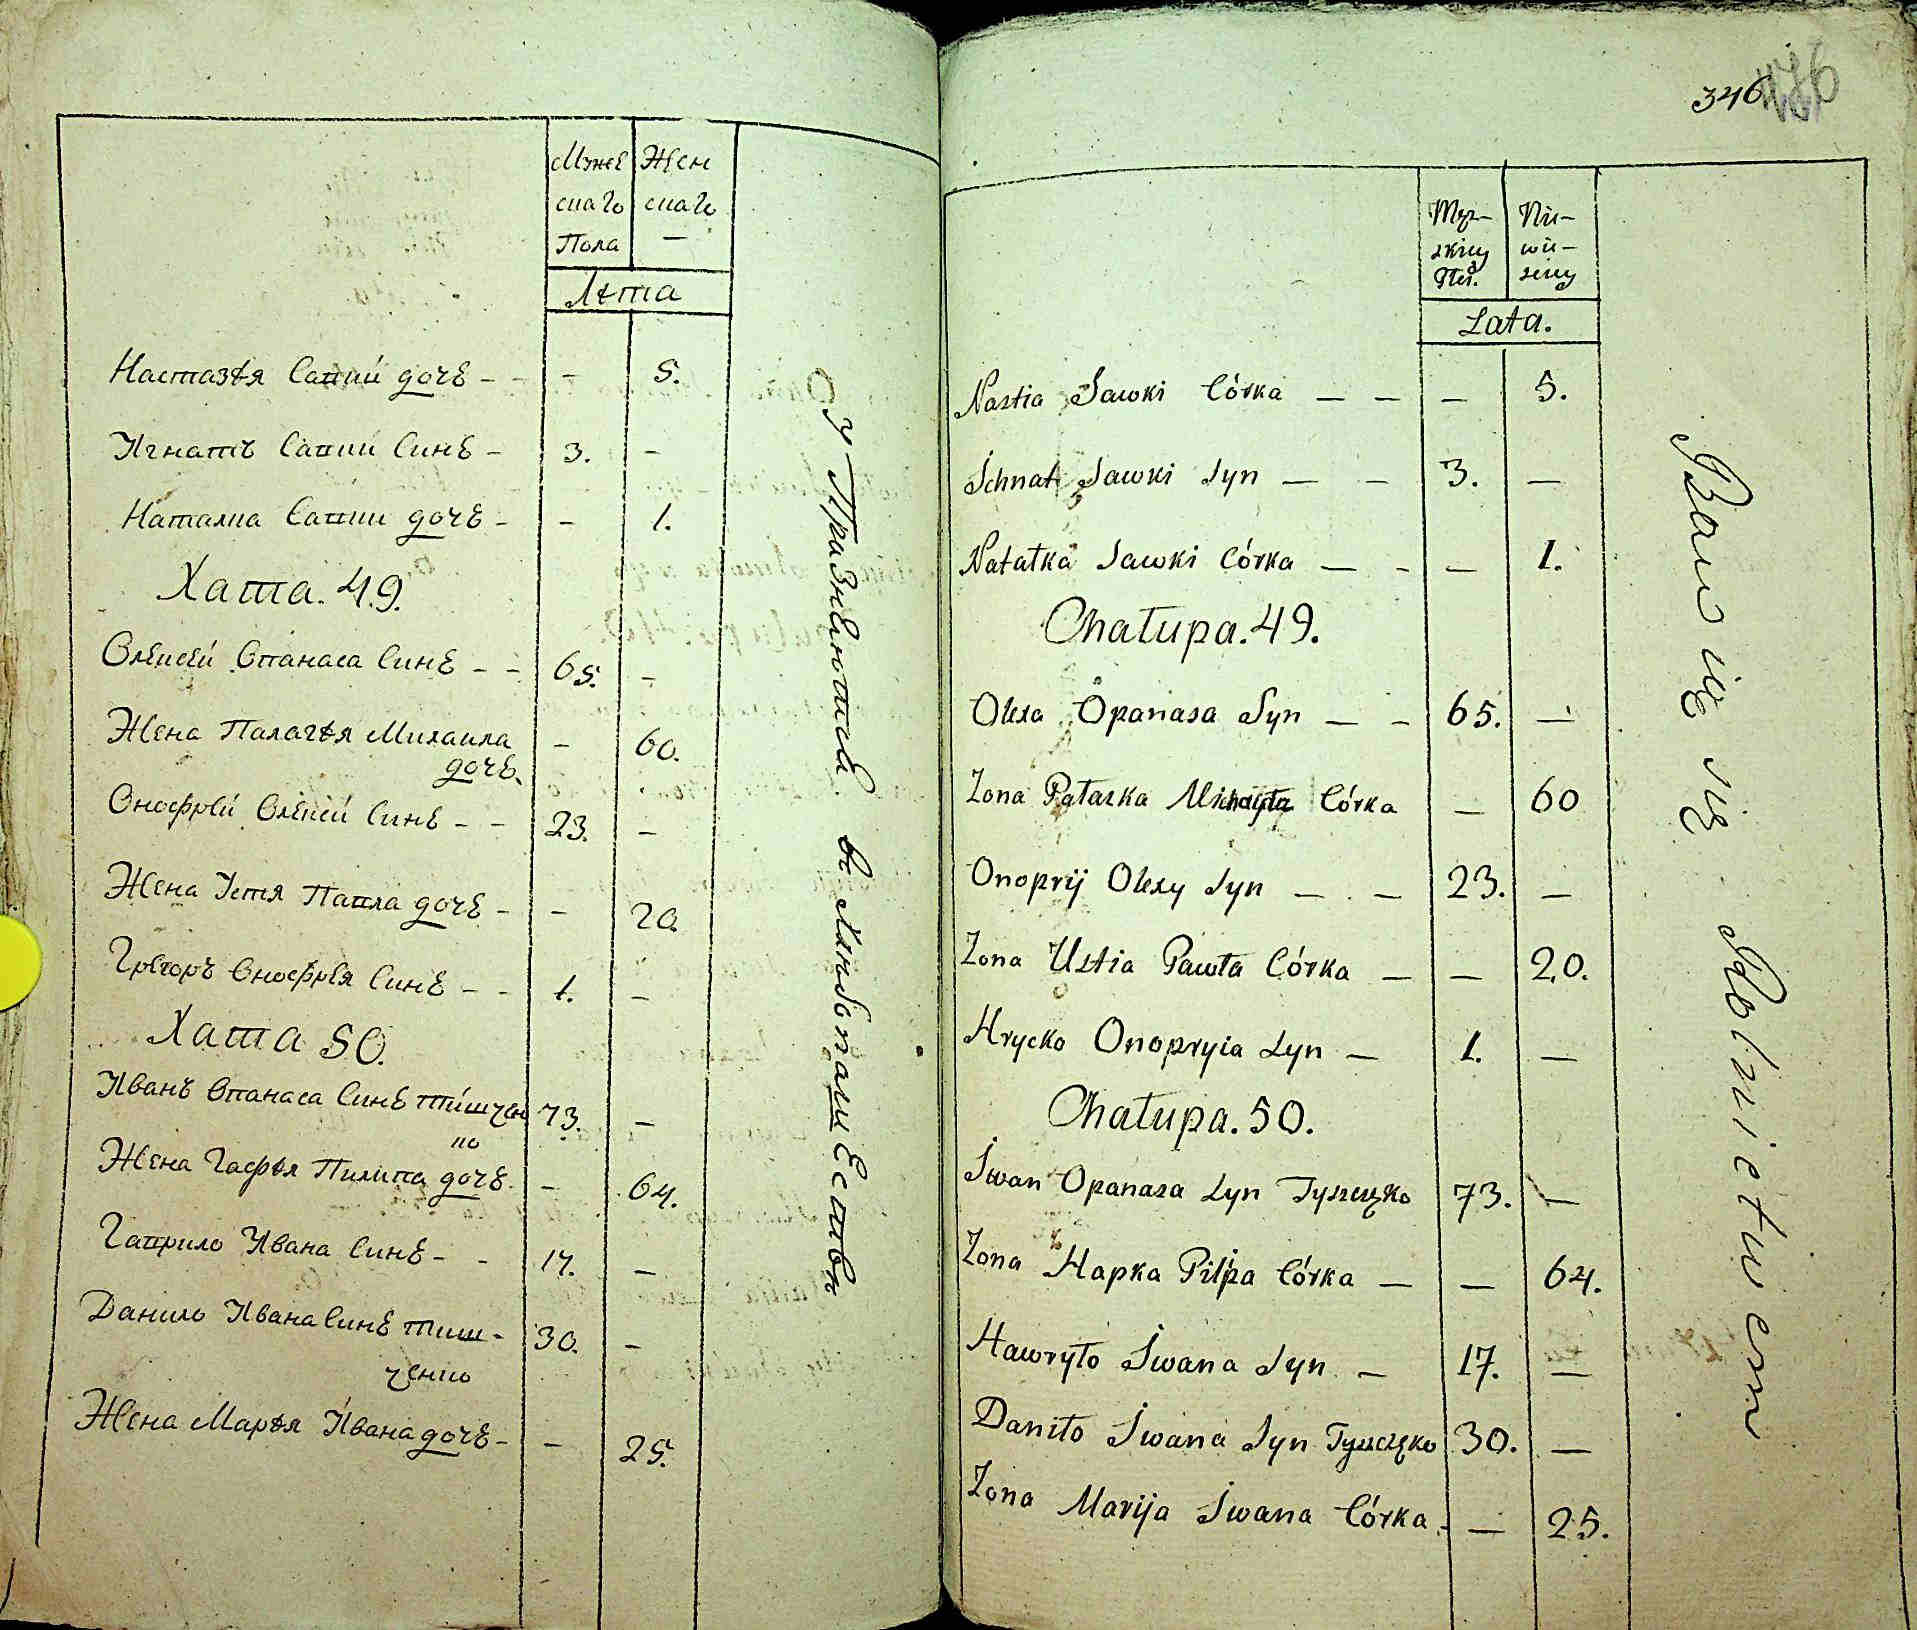 Мужс Жен
скаго скаго
Пола —
Лѣта
Настазѣя Савки дочь - - - 5.
Игнатъ Савки Синъ - 3. -
Наталка Савки дочь - - 1.
Хата. 49.
Олексей Опанаса Синъ - - 65. -
Жена Палагѣя Михаила - 60.
дочь
Онофрей Олексей Синъ - - 23. -
Жена Устя Павла дочь - - 20.
Григоръ Онофрея Синъ - - 1. -
Хата 50.
Иванъ Опанаса Синъ тишчен 73. -
ко
Жена Гафѣя Пилипа дочь - - 64.
Гаврило Ивана Синъ - - 17. -
Данило Ивана Синъ тиш- 30. -
ченко
Жена Марѣя Ивана дочь - - 25.
346
Męz- Nie-
skiey wie-
Płci. sciey
Lata.
Nastia Sawki Córka — — — 5.
Ichnat Sawki Syn — — 3. —
Natałka Sawki Córka — - — 1.
Chałupa. 49.
Olexa Opanasa Syn — — 65. —
Zona Pałaszka Michayła Córka — 60
Onoprij Olexy Syn — — 23. —
Zona Ustia Pawła Córka — — 20.
Hrycko Onopryia Syn — 1. —
Chałupa. 50.
Iwan Opanasa Syn Tyszczko 73. —
Zona Hapka Pilpa Córka — — 64.
Hawryło Iwana Syn — 17. —
Daniło Iwana Syn Tyszczko 30. —
Zona Marija Iwana Córka - — 25.
Bawią się Rolnictwem